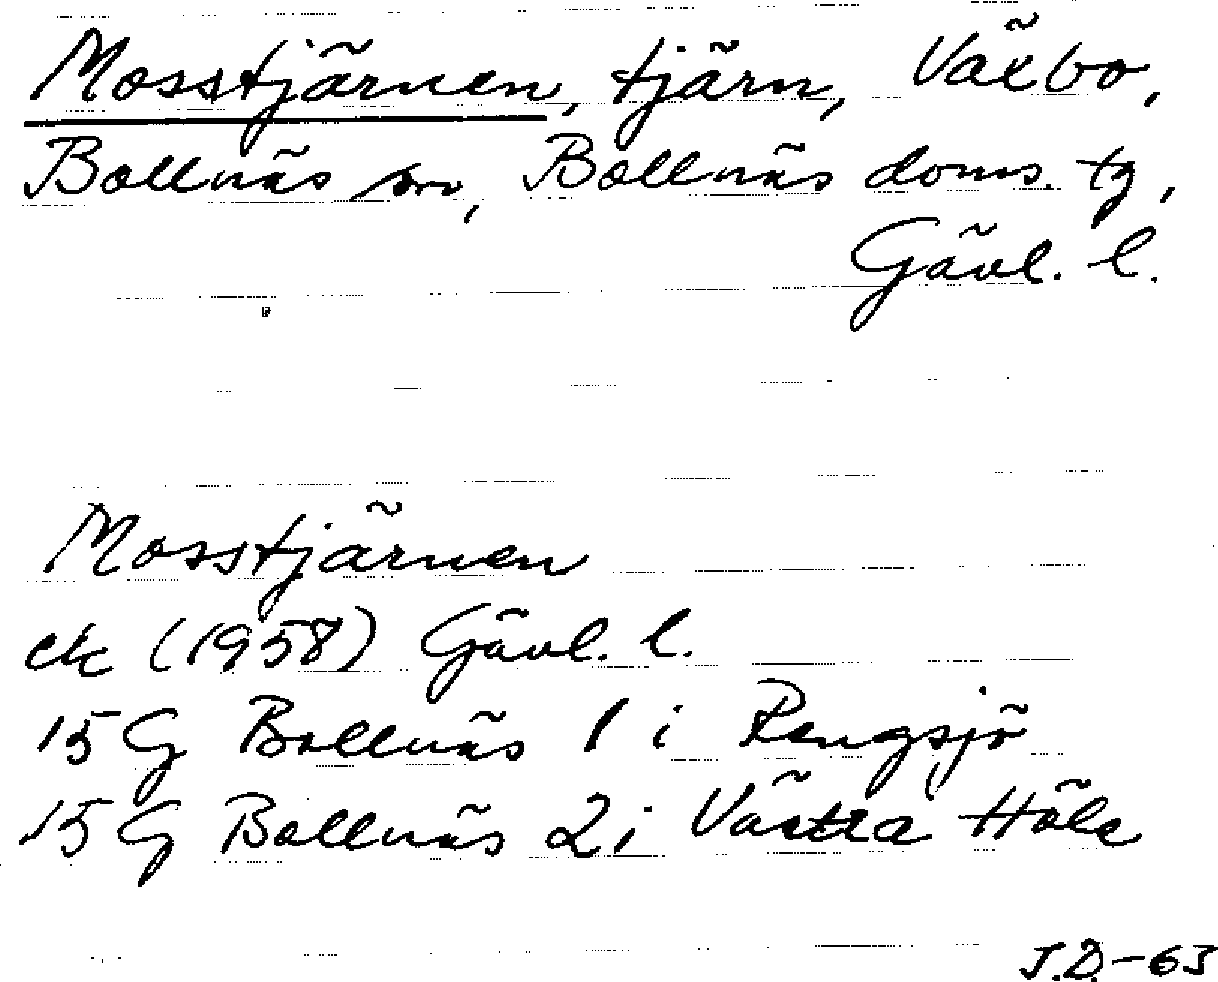 Mosstjärnen, tjärn, Växbo,
Bollnäs sn, Bollnäs doms. tg,
Gävl. l.
Mosstjärnen
ek (1958) Gävl. l.
15 G Bollnäs 1 i Rengsjö
15 G Bollnäs 2 i Västra Höle
J.D.-63